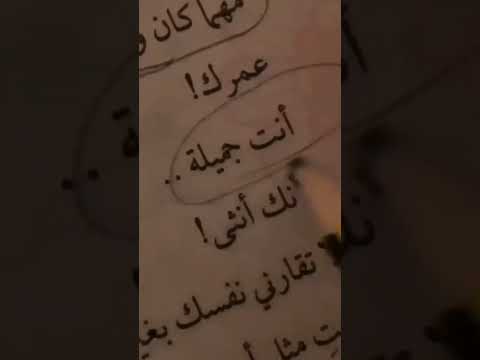 مهما كان
عمرك!
أنت جميلة ..
نك أنثى!
تقارني نفسك بغي
ت مثل أ